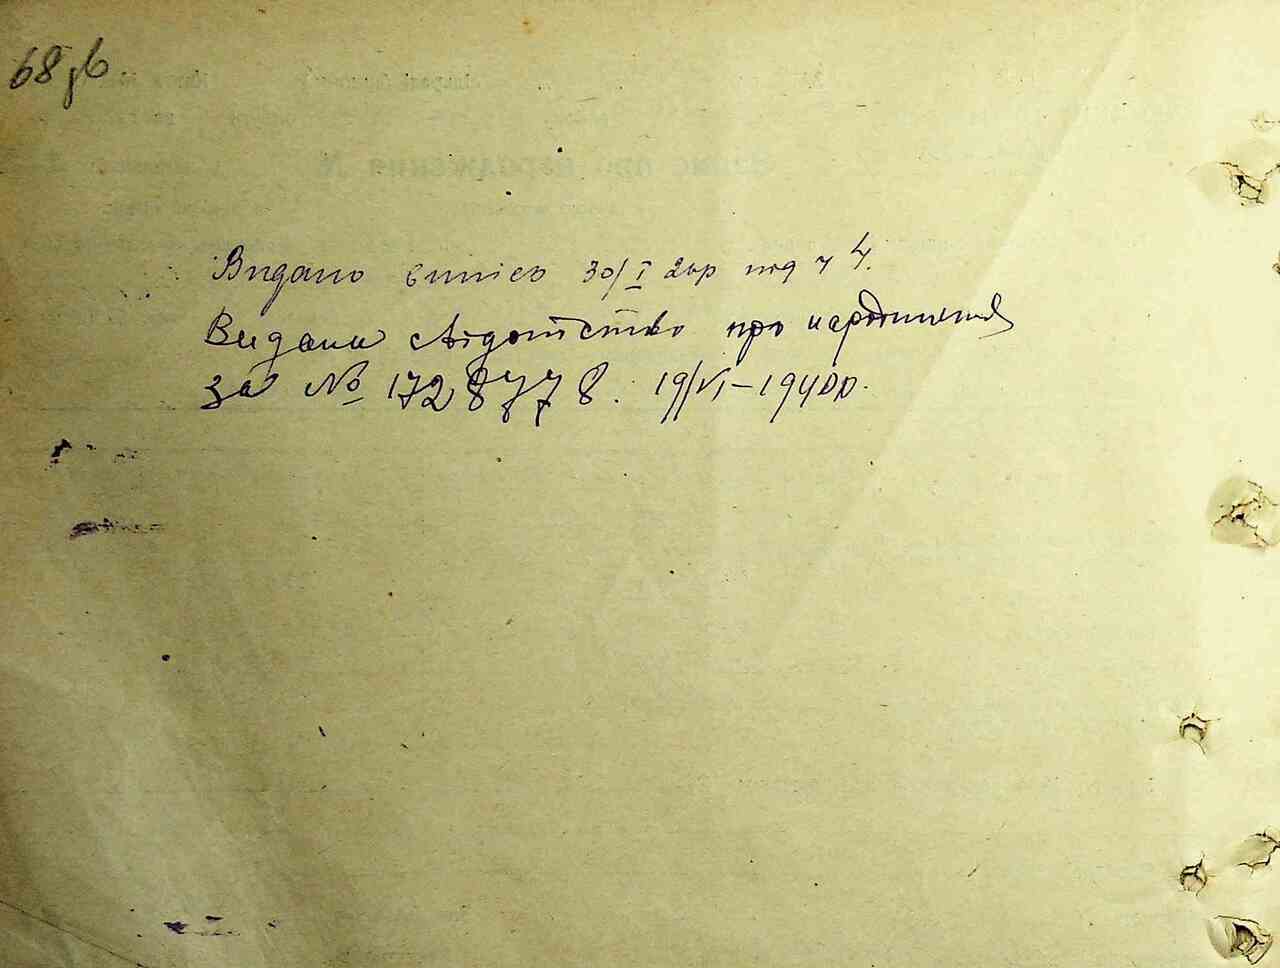 68 зв
Видано випіс 30/I 24р под ч 4.
Видани свідотство про народження
за № 1728778. 19/VI-1940р.